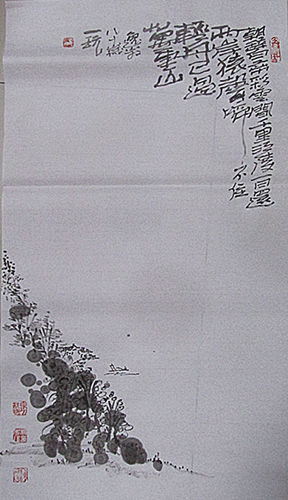 朝辭白帝彩雲間千里江陵一日還
兩岸猿聲啼不住
輕舟已過
萬重山
八十歲